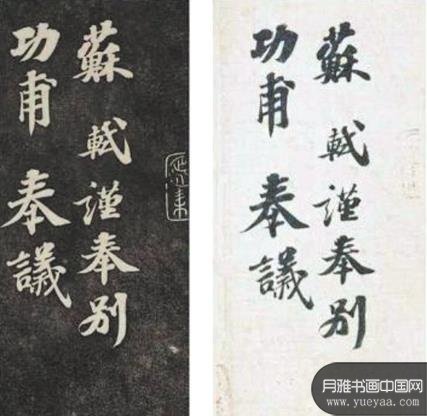 蘇軾謹奉別
功甫奉議
蘇軾謹奉別
功甫奉議
月雅书画中国网
www.yueyaa.com